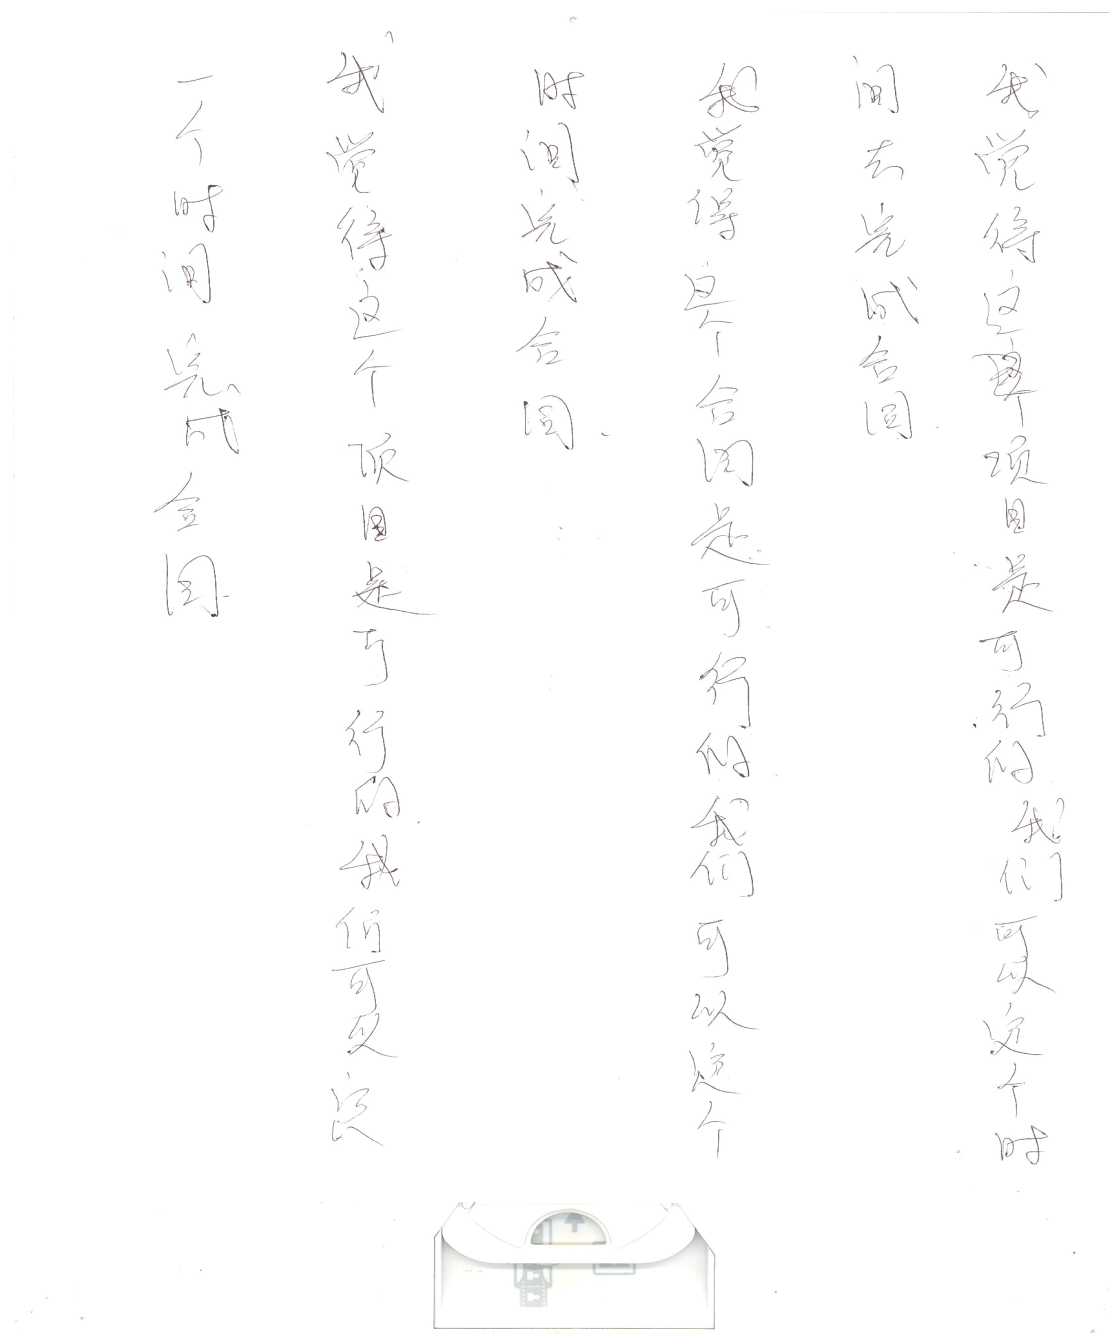 我觉得这个项目是可行的我们可以定个时
间去完成合同.
我觉得这个合同是可行的我们可以定个
时间完成合同.
我觉得这个项目是可行的我们可以定
一个时间完成合同.